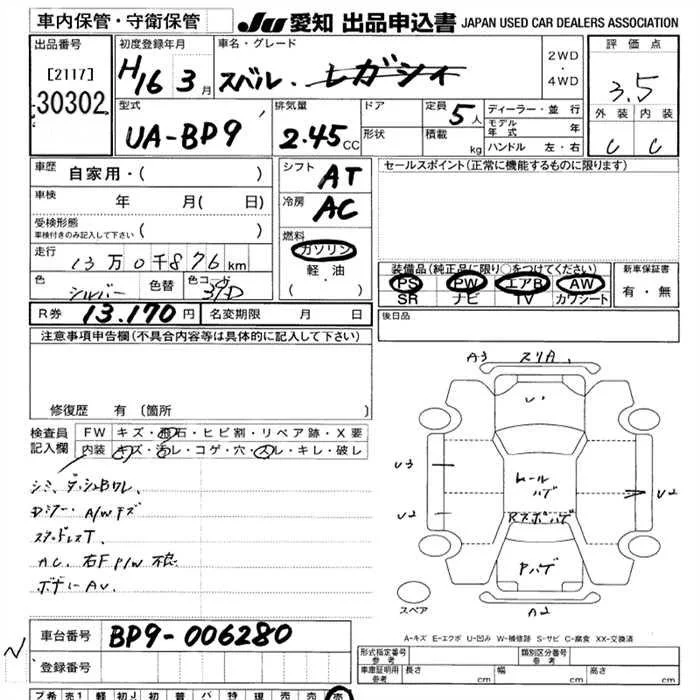 車内保管・守衛保管 JU 愛知 出品申込書 JAPAN USED CAR DEALERS ASSOCIATION
出品番号 初度登録年月 車名・グレード 2WD・4WD 評価点
[2117] H16 3月 スバル・レガシィ 3.5
30302 外装 内装
型式 排気量 ドア 定員 5人 ディーラー・並行
UA-BP9 2.45CC 形状 積載 kg モデル年式 年 C C
ハンドル 左・右
車歴 自家用・( ) シフト AT セールスポイント(正常に機能するものに限ります)
車検 年 月( 日) 冷房 AC
受検形態
車検付きのみ記入して下さい ( ) 燃料
走行 13万0千876km ガソリン
軽・油
( ・ )
装備品(純正品に限り○をつけてください) 新車保証書
色 シルバー 色替 色コード PS PW エアB AW 有・無
SR ナビ TV カワシート
R券 13.170円 名変期限 月 日 後日品
注意事項申告欄(不具合内容等は具体的に記入して下さい)
修復歴 有 (箇所
検査員記入欄 FW キズ・飛石・ヒビ割・リペア跡・X要
内装 キズ・汚レ・コゲ・穴・スレ・キレ・破レ
シミ、ダッシュBワレ
Dミラー・A/Wキズ
スタッドレスT
AC、右F P/W 不良
ボデーAU
A3 スリA
U
U3
U2
ルールハゲ
Rスポハゲ
U2
Pハゲ
A2
スペア
A-キズ E-エクボ U-凹み W-補修跡 S-サビ C-腐食 XX-交換済
車台番号 BP9-006280
登録番号
形式指定番号 参考 類別区分番号 参考
車庫証明用 参考 長さ cm 幅 cm 高さ cm